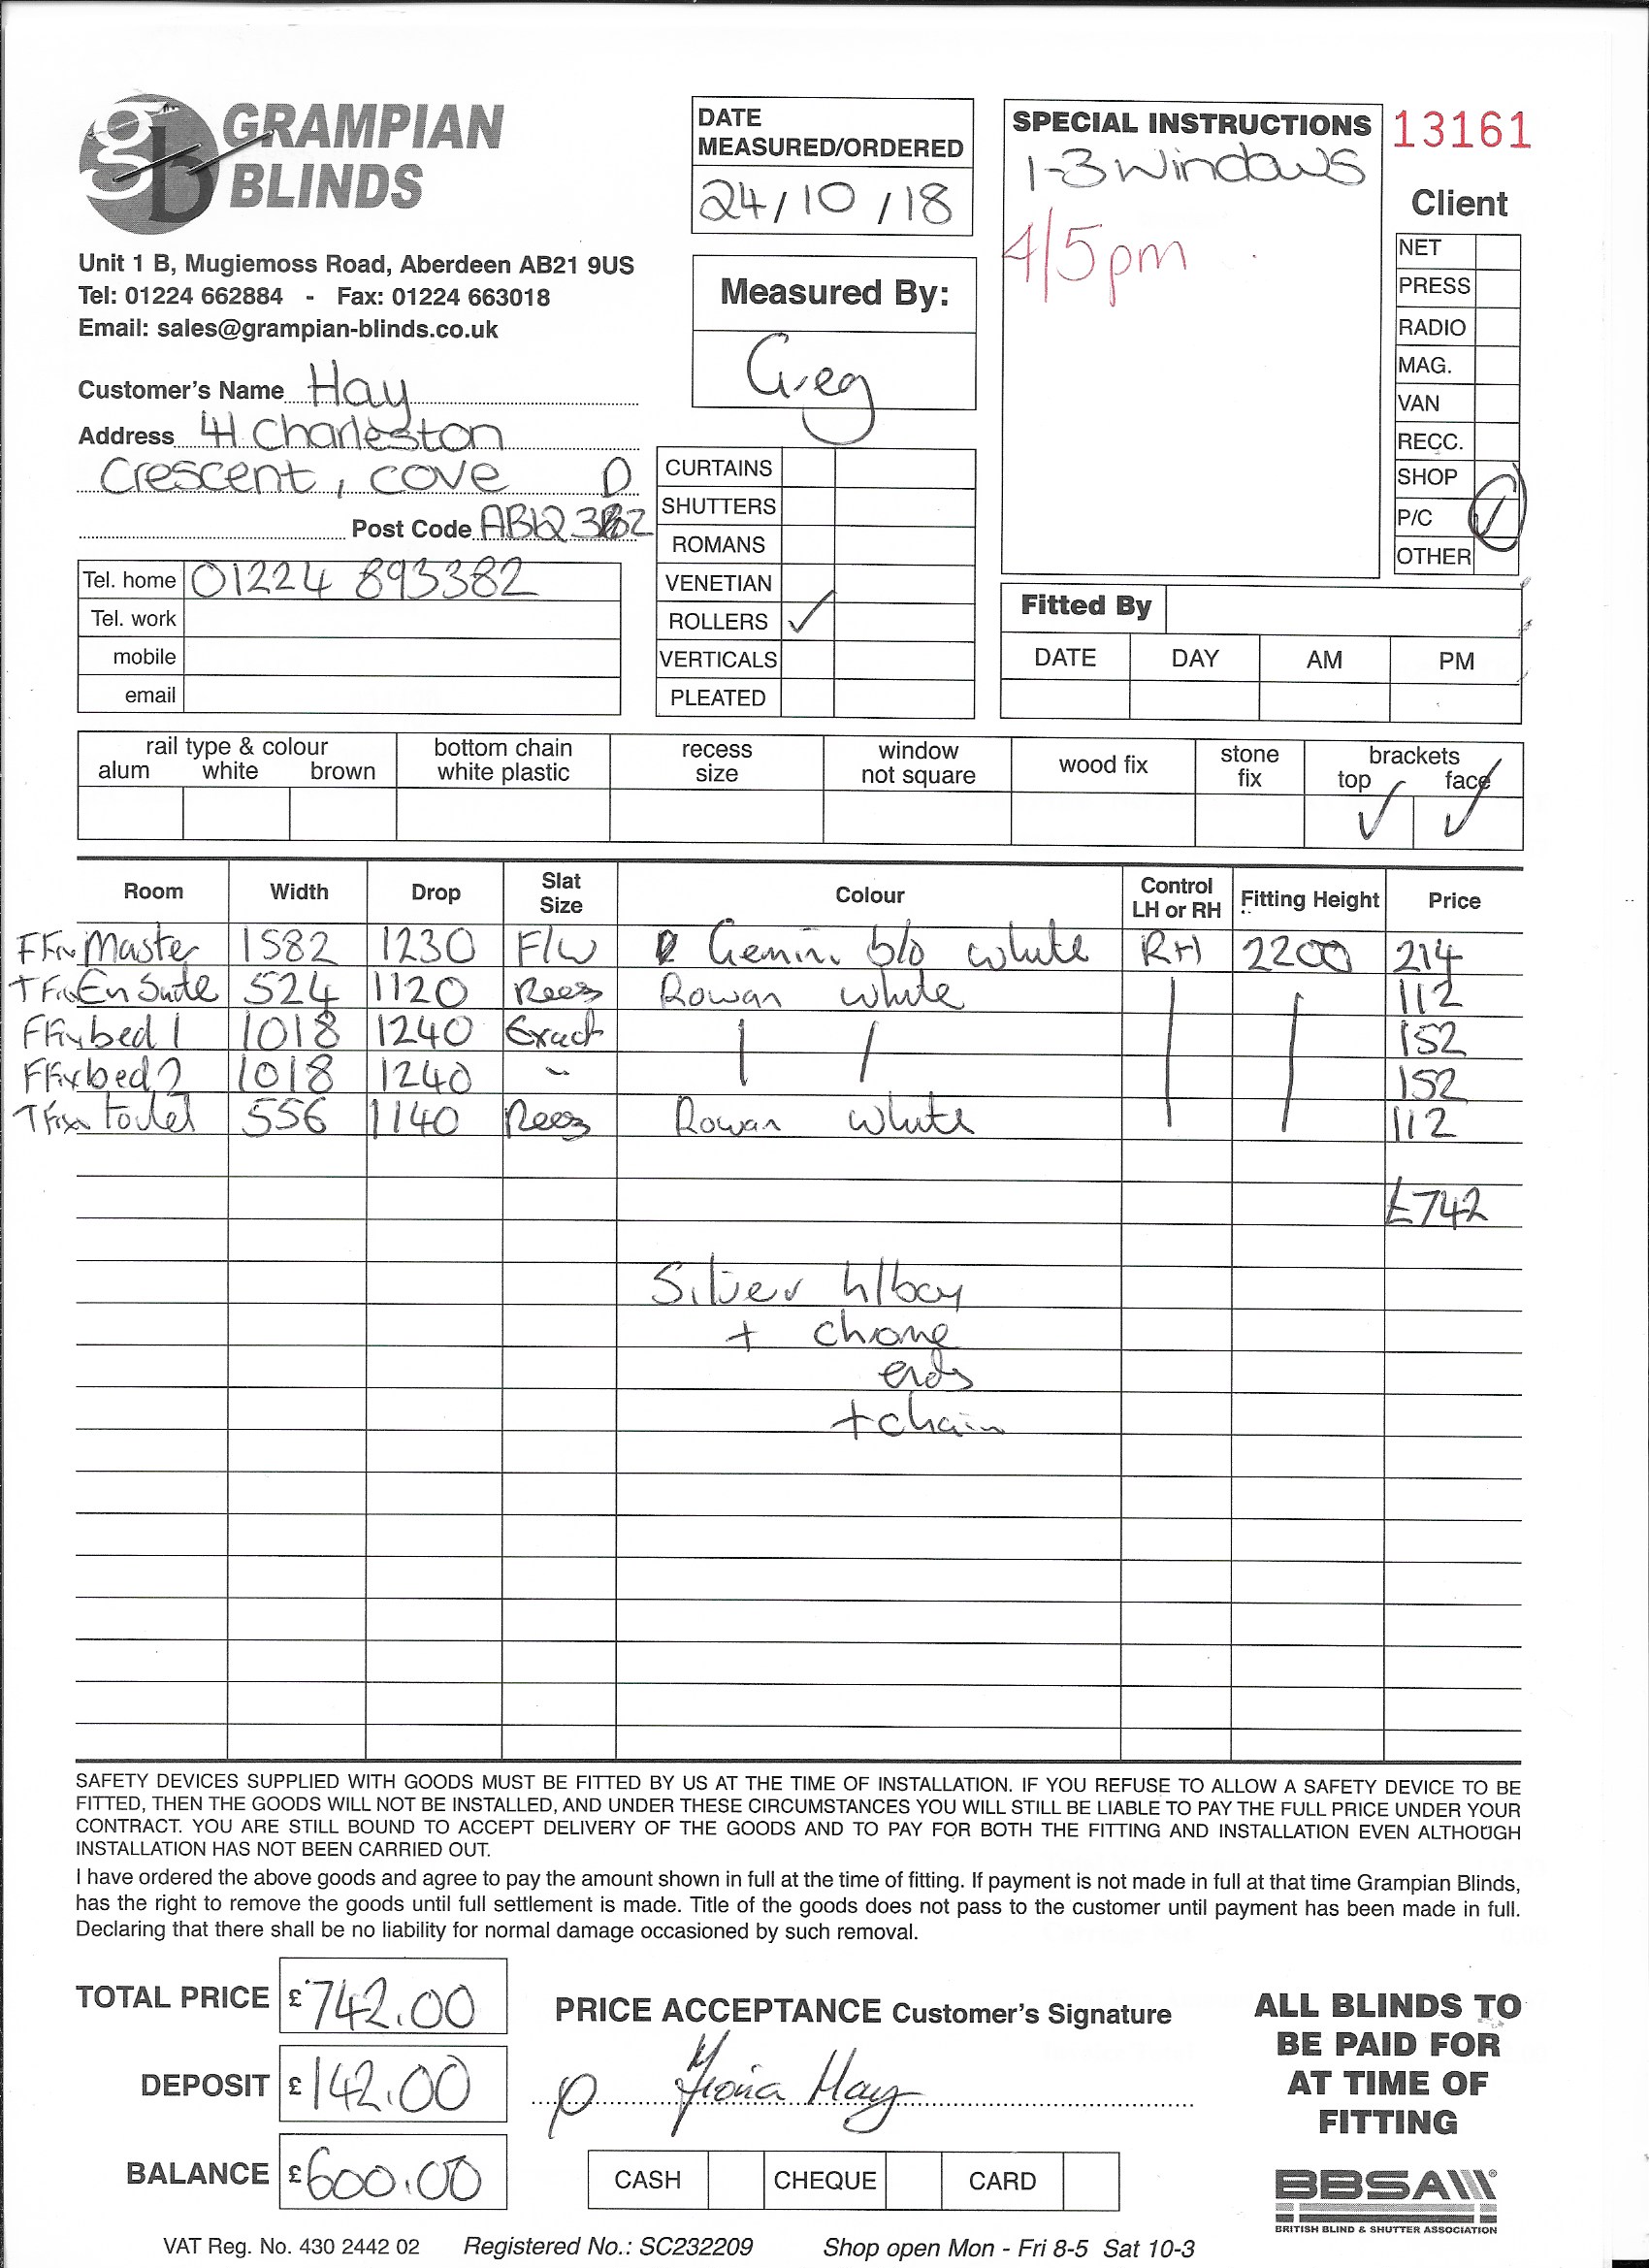 GRAMPIAN
BLINDS
gb
Unit 1 B, Mugiemoss Road, Aberdeen AB21 9US
Tel: 01224 662884 - Fax: 01224 663018
Email: sales@grampian-blinds.co.uk
Customer's Name Hay
Address 41 Charleston
Crescent, cove D
Post Code
Tel. home 01224 893382
Tel. work
mobile
email
DATE
MEASURED/ORDERED
24/10/18
Measured By:
Greg
CURTAINS
SHUTTERS
ROMANS
VENETIAN
ROLLERS ✓
VERTICALS
PLEATED
SPECIAL INSTRUCTIONS
1-3 windows
4/5pm
13161
Client
NET
PRESS
RADIO
MAG.
VAN
RECC.
SHOP
P/C ✓
OTHER
Fitted By
DATE DAY AM PM
rail type & colour
alum white brown
bottom chain
white plastic
recess
size
window
not square
wood fix
stone
fix
brackets
top face
✓ ✓
Room Width Drop Slat Size Colour Control LH or RH Fitting Height Price
FFix Master 1582 1230 F/W Gemini b/o white RH 2200 214
TFix En Suite 524 1120 Recs Rowan white 112
FFix bed 1 1018 1240 Exact 152
FFix bed 2 1018 1240 ~ 152
TFix toilet 556 1140 Recs Rowan white 112
£742
Silver h/bar
+ chrome
ends
+ chain
SAFETY DEVICES SUPPLIED WITH GOODS MUST BE FITTED BY US AT THE TIME OF INSTALLATION. IF YOU REFUSE TO ALLOW A SAFETY DEVICE TO BE
FITTED, THEN THE GOODS WILL NOT BE INSTALLED, AND UNDER THESE CIRCUMSTANCES YOU WILL STILL BE LIABLE TO PAY THE FULL PRICE UNDER YOUR
CONTRACT. YOU ARE STILL BOUND TO ACCEPT DELIVERY OF THE GOODS AND TO PAY FOR BOTH THE FITTING AND INSTALLATION EVEN ALTHOUGH
INSTALLATION HAS NOT BEEN CARRIED OUT.
I have ordered the above goods and agree to pay the amount shown in full at the time of fitting. If payment is not made in full at that time Grampian Blinds,
has the right to remove the goods until full settlement is made. Title of the goods does not pass to the customer until payment has been made in full.
Declaring that there shall be no liability for normal damage occasioned by such removal.
TOTAL PRICE £742.00
DEPOSIT £142.00
BALANCE £600.00
PRICE ACCEPTANCE Customer's Signature
p Fiona Hay
CASH CHEQUE CARD
ALL BLINDS TO
BE PAID FOR
AT TIME OF
FITTING
BBSA
BRITISH BLIND & SHUTTER ASSOCIATION
VAT Reg. No. 430 2442 02 Registered No.: SC232209 Shop open Mon - Fri 8-5 Sat 10-3